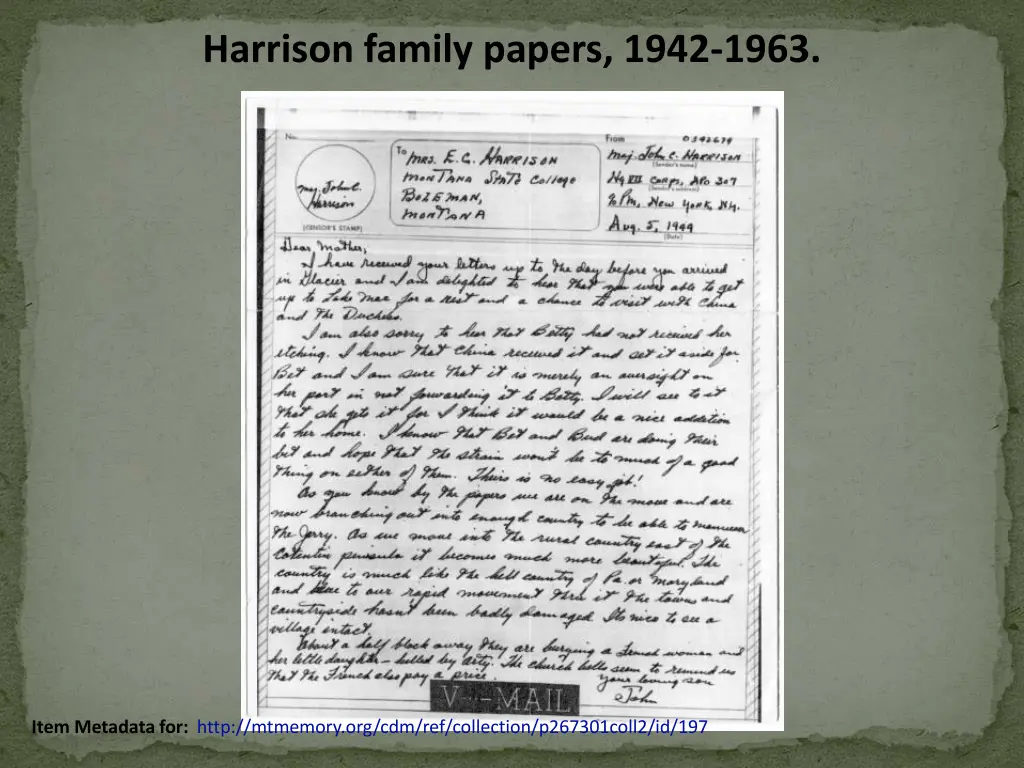 Harrison family papers, 1942-1963.
No.
(CENSOR'S STAMP)
Maj. John C.
Harrison
To
Mrs. E.C. Harrison
Montana State College
Bozeman,
Montana
From
0342679
Maj. John C. Harrison
(Sender's name)
Hq VII Corps, APO 307
(Sender's address)
% PM, New York, N.Y.
Aug. 5, 1944
(Date)
Dear Mother,
I have received your letters up to the day before you arrived
in Glacier and I am delighted to hear that you were able to get
up to Lake Mac for a rest and a chance to visit with China
and the Duchess.
I am also sorry to hear that Betty had not received her
etching. I know that China received it and set it aside for
Bet and I am sure that it is merely an oversight on
her part in not forwarding it to Betty. I will see to it
that she gets it for I think it would be a nice addition
to her home. I know that Bet and Bud are doing their
bit and hope that the strain won't be to much of a good
thing on either of them. Theirs is no easy job!
As you know by the papers we are on the move and are
now branching out into enough country to be able to maneuver
the Jerry. As we move into the rural country east of the
Cotentin peninsula it becomes much more beautiful. The
country is much like the hill country of Pa. or Maryland
and due to our rapid movement thru it the towns and
countryside hasn't been badly damaged. Its nice to see a
village intact.
About a half block away they are burying a French woman and
her little daughter – killed by arty. The church bells seem to remind us
that the French also pay a price.
Your loving son
John
V···–MAIL
Item Metadata for: http://mtmemory.org/cdm/ref/collection/p267301coll2/id/197